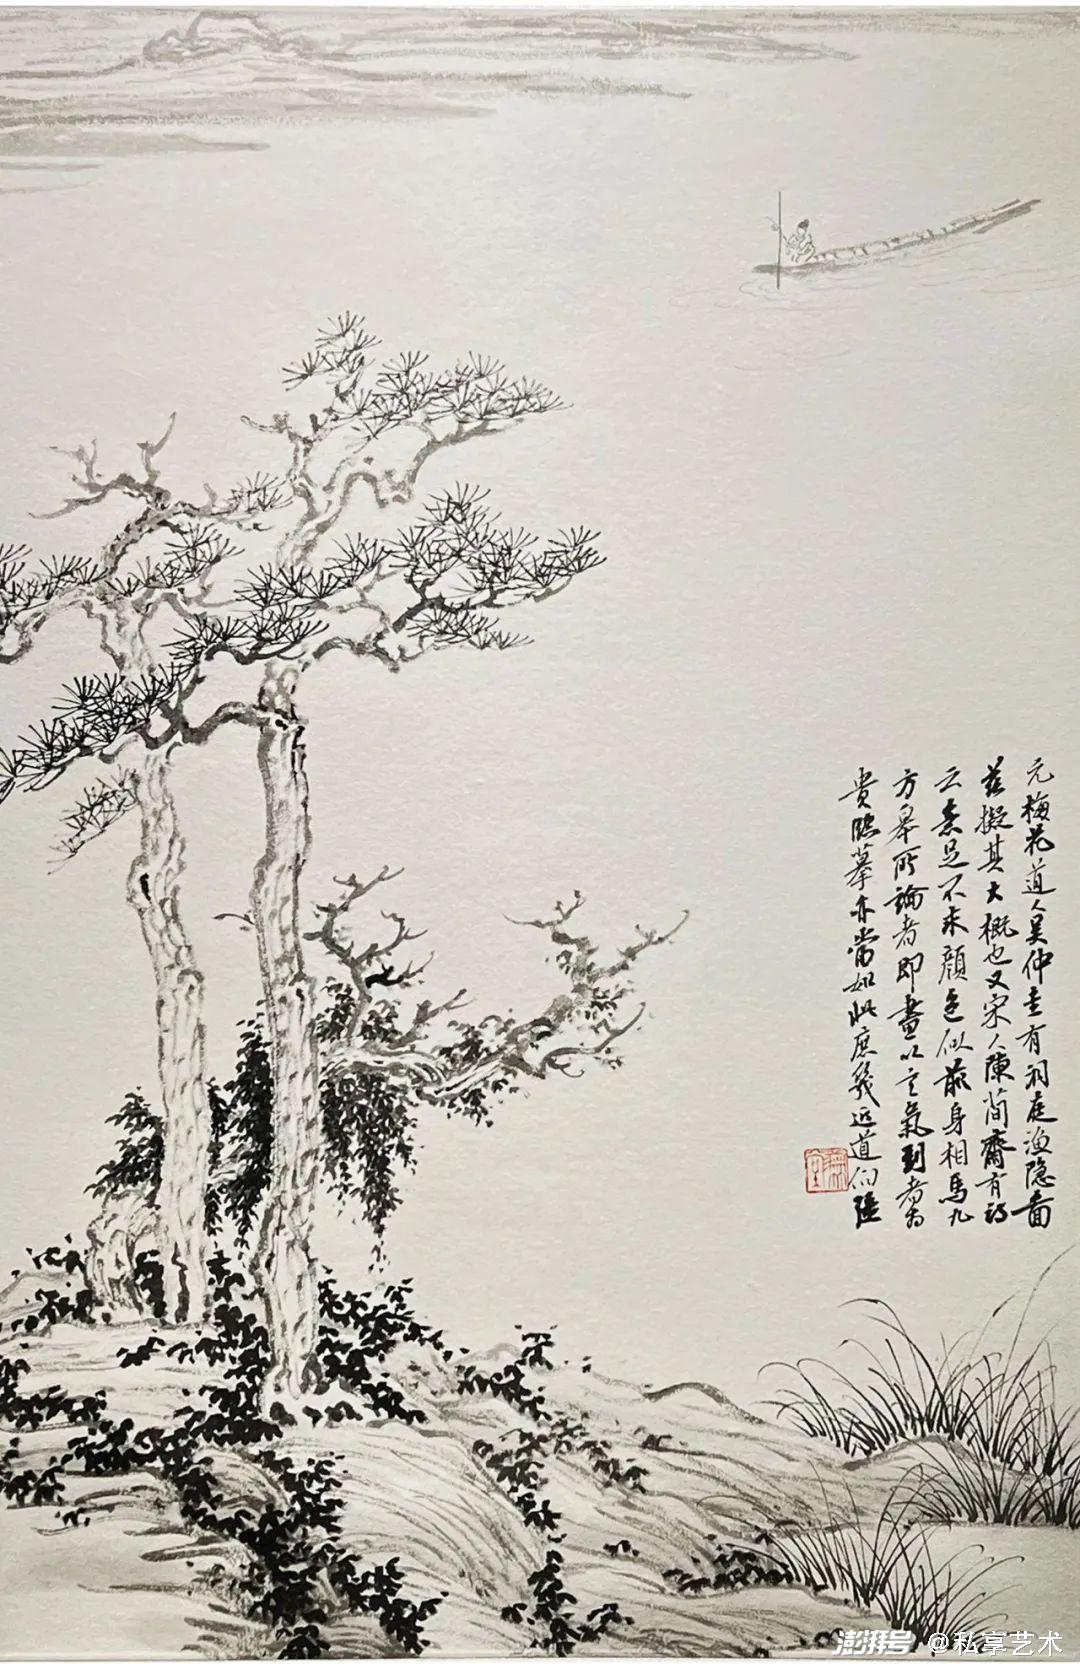 元梅花道人吴仲圭有洞庭渔隐图
兹擬其大概也又宋人陳简齋有詩
云意足不求颜色似前身相馬九
方皋所論者即畫以意氣到者為
貴臨摹亦當如此庶幾近道
澎湃号 @私享艺术